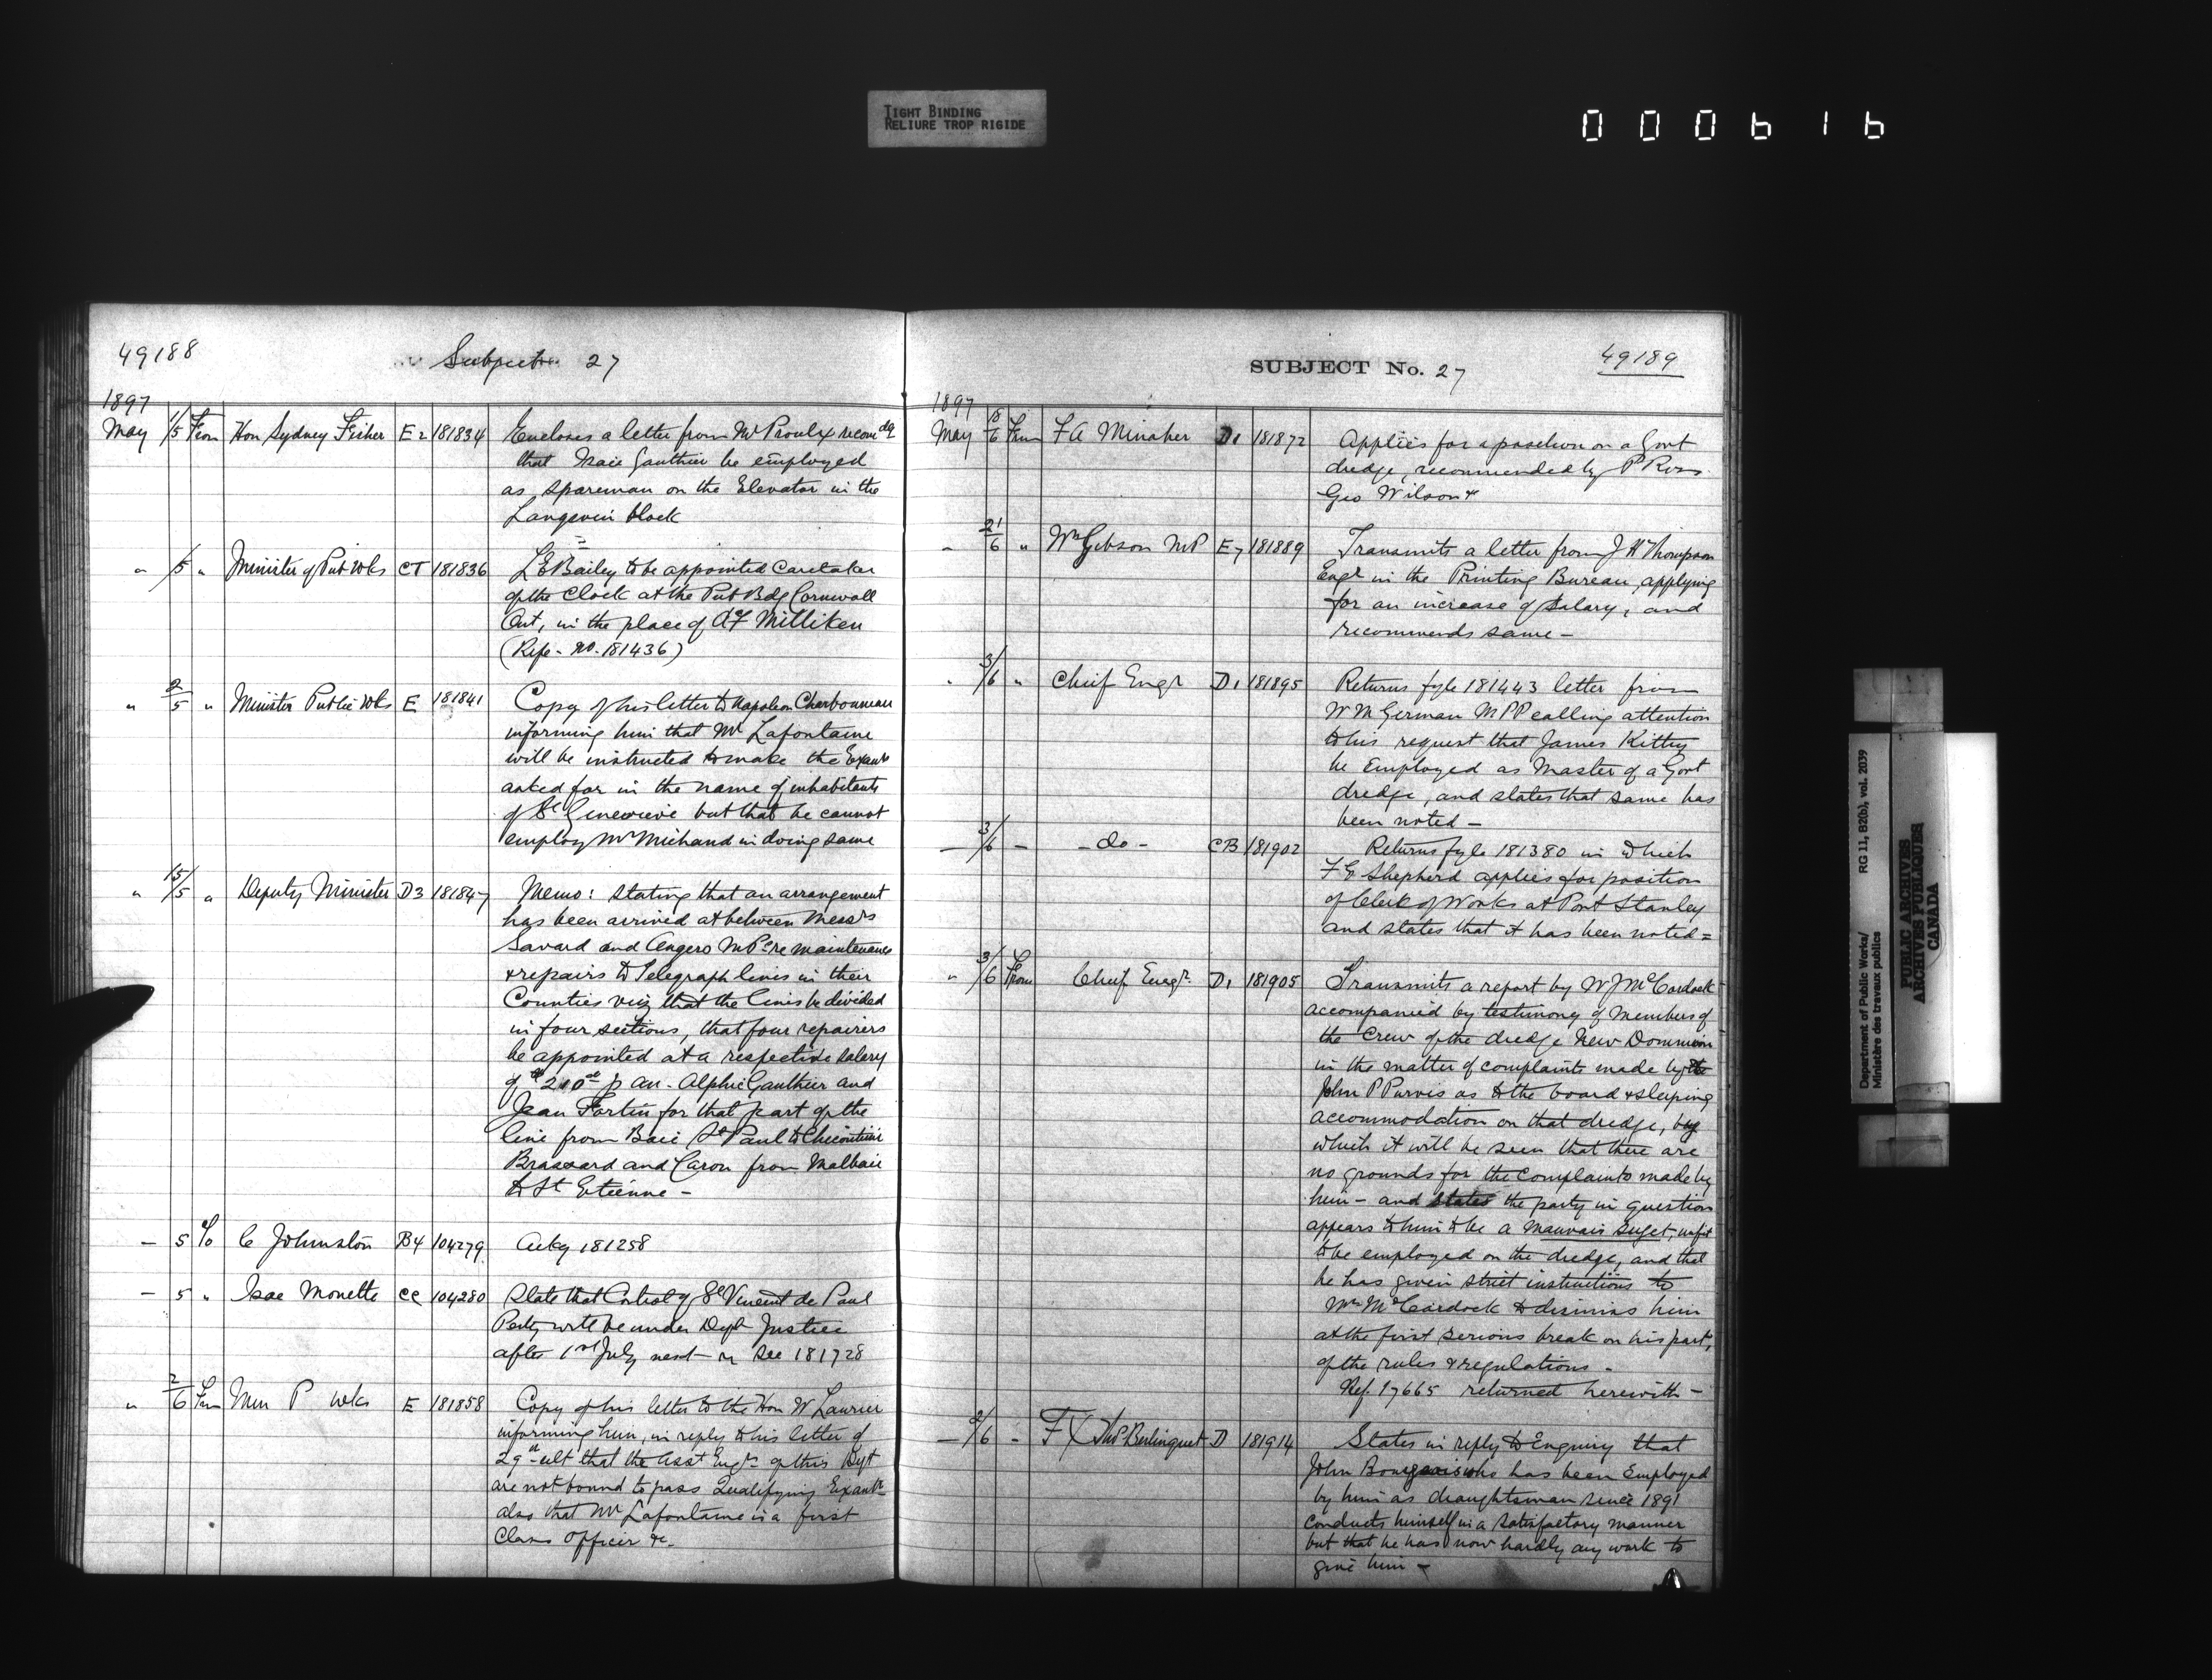 TIGHT BINDING
RELIURE TROP RIGIDE
000616
49188
Subject 27
1897
May 1/5 From Hon Sydney Fisher E2 181834 Encloses a letter from Mr Proulx recomdg
that Isaie Gauthier be employed
as spareman on the Elevator in the
Langevin block
" /5 " Minister of Pub Wks CT 181836 L E Bailey to be appointed Caretaker
of the Clock at the Pub Bdg Cornwall
Ont, in the place of A F Milliken
(Refe - No. 181436)
" 2/5 " Minister Public Wks E 181841 Copy of his letter to Napoleon Charbonneau
informing him that Mr Lafontaine
will be instructed to make the Examn
asked for in the name of inhabitants
of Ste Genevieve but that he cannot
employ Mr Michaud in doing same
" 15/5 " Deputy Minister D3 181847 Memo: stating that an arrangement
has been arrived at between Messrs
Savard and Angers M Ps re maintenance
& repairs to Telegraph lines in their
Counties viz that the lines be divided
in four sections, that four repairers
be appointed at a respective salary
of $210 p an - Alphie Gauthier and
Jean Fortin for that part of the
line from Baie St Paul to Chicoutimi
Brassard and Caron from Malbaie
to St Etienne -
- 5 To C Johnston B4 104279 Ackg 181258
- 5 " Isae Monette CC 104280 State that Control of St Vincent de Paul
Peity will be under Dept Justice
after 1st July next - see 181728
" 2/6 From Min P Wks E 181858 Copy of his letter to the Hon W Laurier
informing him, in reply to his letter of
29th ult that the Asst Engrs of this Dept
are not bound to pass Qualifying Examn
also that Mr Lafontaine is a first
Class Officer &c.
SUBJECT No. 27
49189
1897
May 18/6 From F A Minaker D1 181872 Applies for a position on a Govt
dredge, recommended by P Ross
Geo Wilson &
- 21/6 " Wm Gibson MP E7 181889 Transmits a letter from J H Thompson
Engr in the Printing Bureau, applying
for an increase of salary, and
recommends same -
" 3/6 " Chief Engr D1 181895 Returns fyle 181443 letter from
W M German M P P calling attention
to his request that James Kittny
be Employed as Master of a Govt
dredge, and states that same has
been noted -
- 3/6 - - do - CB 181902 Returns fyle 181380 in which
F G Shepherd applies for position
of Clerk of Works at Port Stanley
and states that it has been noted =
" 3/6 From Chief Engr. D1 181905 Transmits a report by W J McCordock
accompanied by testimony of members of
the Crew of the dredge New Dominion
in the matter of complaint made by
John P Purvis as to the board & sleeping
accommodation on that dredge, by
which it will be seen that there are
no grounds for the complaints made by
him - and states the party in question
appears to him to be a mauvais sujet, unfit
to be employed on the dredge, and that
he has given strict instructions to
Mr McCordock to dismiss him
at the first serious break on his part,
of the rules & regulations -
Ref. 17665 returned herewith -
- 2/6 - F X Thos Berlinguet D 181914 States in reply to Enquiry that
John Bourgeois who has been Employed
by him as draughtsman since 1891
conducts himself in a satisfactory manner
but that he has now hardly any work to
give him -
Department of Public Works/
Ministère des travaux publics
RG 11, B2(b), vol. 2039
PUBLIC ARCHIVES
ARCHIVES PUBLIQUES
CANADA